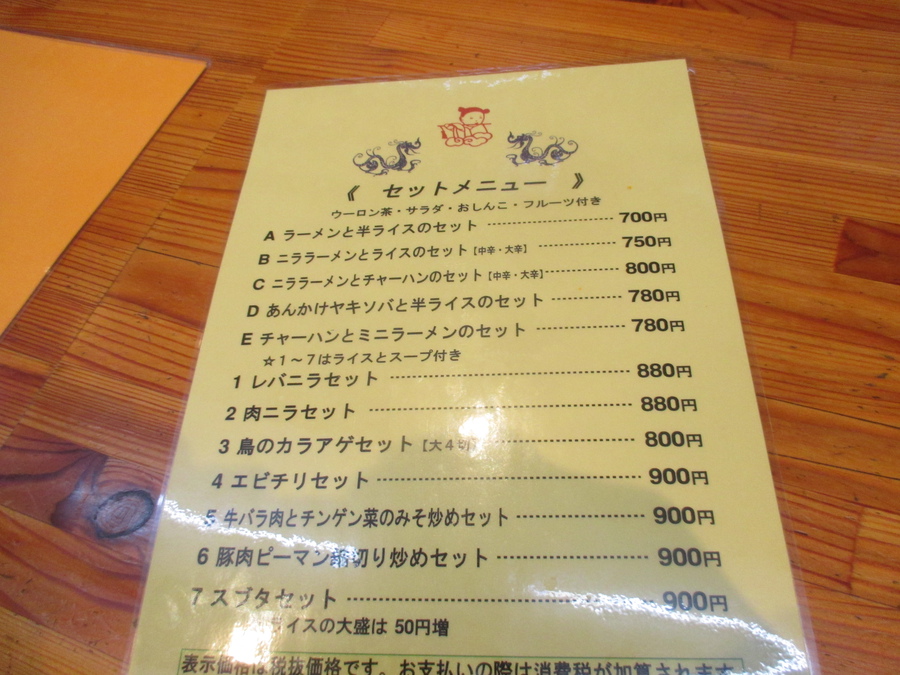 《 セットメニュー 》
ウーロン茶・サラダ・おしんこ・フルーツ付き
A ラーメンと半ライスのセット 700円
B ニララーメンとライスのセット【中辛・大辛】 750円
C ニララーメンとチャーハンのセット【中辛・大辛】 800円
D あんかけヤキソバと半ライスのセット 780円
E チャーハンとミニラーメンのセット 780円
☆1～7はライスとスープ付き
1 レバニラセット 880円
2 肉ニラセット 880円
3 鳥のカラアゲセット【大4切】 800円
4 エビチリセット 900円
5 牛バラ肉とチンゲン菜のみそ炒めセット 900円
6 豚肉ピーマン細切り炒めセット 900円
7 スブタセット 900円
ライスの大盛は 50円増
表示価格は税抜価格です。お支払いの際は消費税が加算されます